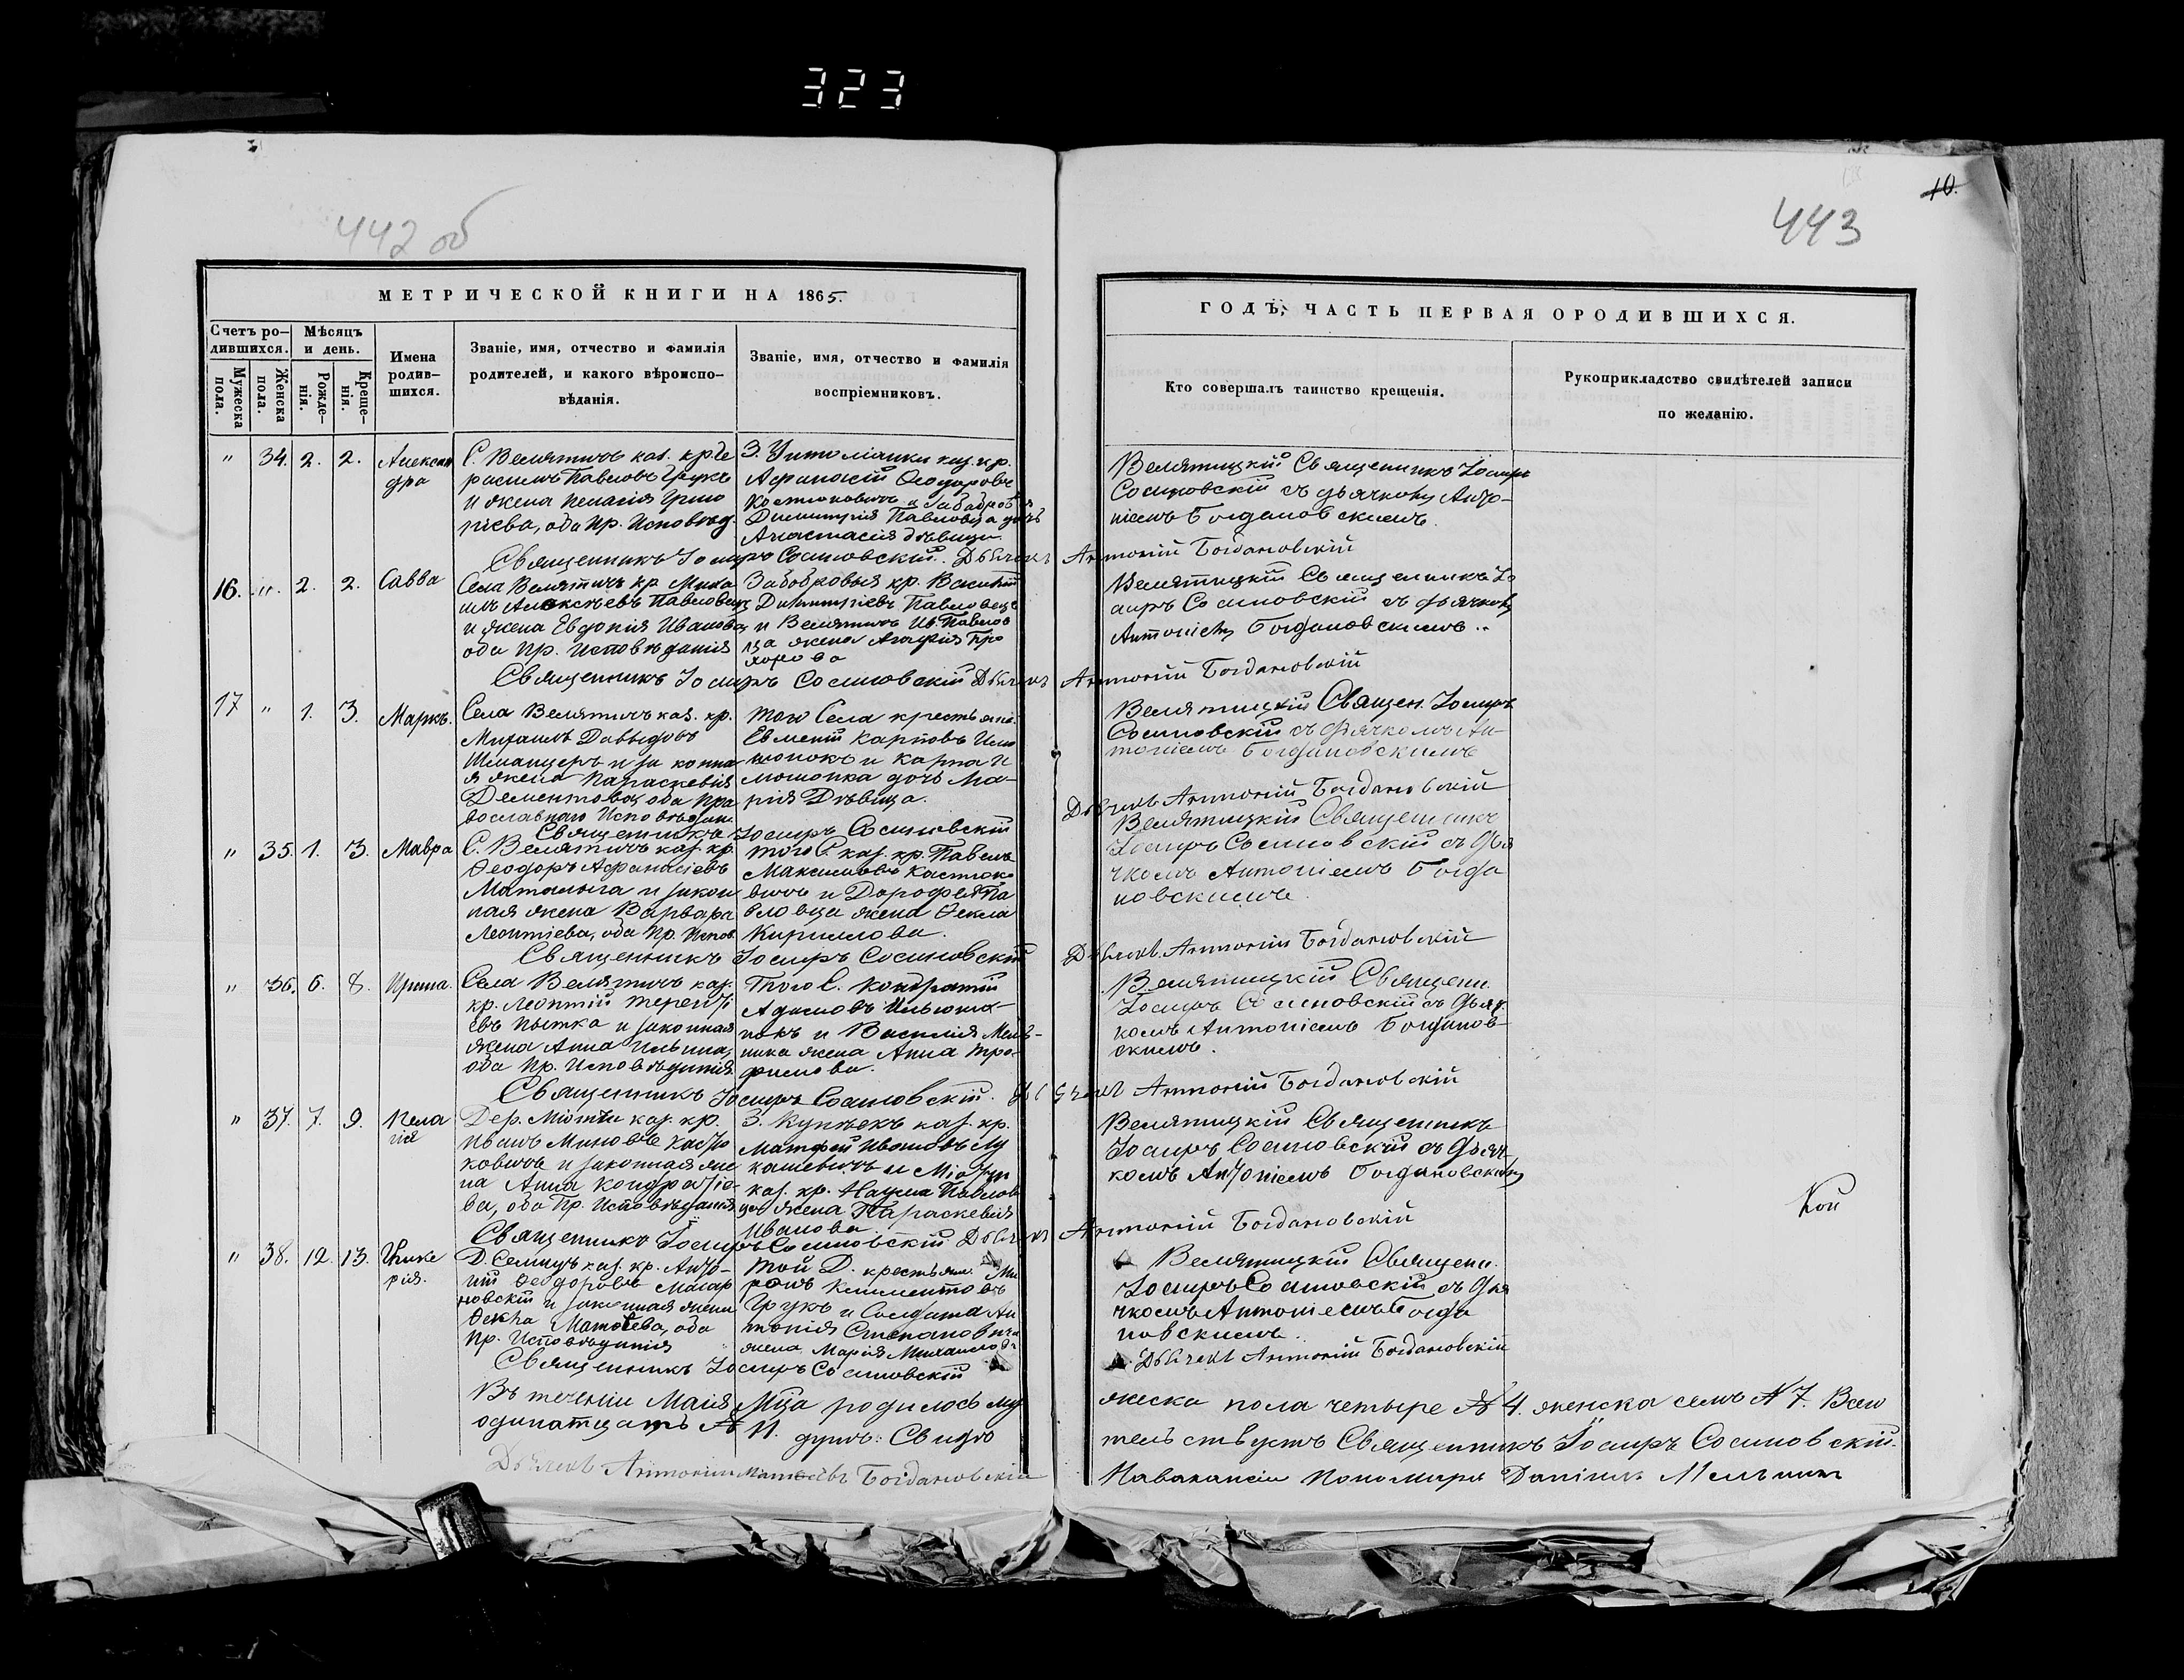 323
442 об
443
10.
МЕТРИЧЕСКОЙ КНИГИ НА 1865.
Счетъ ро-
дившихся.
Мужеска пола.
Женска пола.
Мѣсяцъ
и день.
Рожде-
нія.
Креще-
нія.
Имена
родив-
шихся.
Званіе, имя, отчество и фамилія
родителей, и какого вѣроиспо-
вѣданія.
Званіе, имя, отчество и фамилія
воспріемниковъ.
ГОДЪ, ЧАСТЬ ПЕРВАЯ О РОДИВШИХСЯ.
Кто совершалъ таинство крещенія.
Рукоприкладство свидѣтелей записи
по желанію.
" 34. 2. 2. Алексан
дра
С. Велятичъ каз. кр. Ге
расимъ Павловъ Грукъ
и жена Пелагія Григо
ріева, оба Пр. Исповѣд.
каз. кр.
Афанасій Ѳеодоровъ
Костюковичъ и Забобровья
Димитрія Павловца дочь
Анастасія дѣвица
Велятицкій Священникъ Іосифъ
Сосиновскій съ дьячкомъ Анто-
ніемъ Богдановскимъ.
Священникъ Іосифъ Сосиновскій. Дьячекъ Антоній Богдановскій
16. " 2. 2. Савва
Села Велятичъ кр. Миха
илъ Алексѣевъ Павловецъ
и жена Евдокія Иванова
оба Пр. Исповѣданія
Забобровья кр. Василій
Димитріевъ Павловецъ
и Велятичъ Ив. Павлов
ца жена Агафія Про
хорова
Велятицкій Священникъ Іо
сифъ Сосиновскій съ дьячкомъ
Антоніемъ Богдановскимъ..
Священникъ Іосифъ Сосиновскій Дьячекъ Антоній Богдановскій
17 " 1. 3. Маркъ.
Села Велятичъ каз. кр.
Михаилъ Давыдовъ
Шпанцеръ и законна
я жена Параскевія
Дементова, оба Пра
вославнаго Исповѣдан.
того Села крестьяни.
Евментій Карповъ Илю
шонокъ и Карпа И
люшонка дочь Ма-
рія Дѣвица.
Велятицкій Священ. Іосифъ
Сосиновскій съ дьячкомъ Ан-
тоніемъ Богдановскимъ
Священникъ Іосифъ Сосиновскій
Дьячекъ Антоній Богдановскій
" 35. 1. 3. Мавра
С. Велятичъ каз. кр.
Ѳеодоръ Афанасіевъ
Маталыга и закон
ная жена Варвара
Леонтіева, оба Пр. Испов.
того С. каз. кр. Павелъ
Максимовъ Костюко
вичъ и Дорофея Па
вловца жена Ѳекла
Кириллова.
Велятицкій Священникъ
Іосифъ Сосиновскій съ дья
чкомъ Антоніемъ Богда
новскимъ.
Священникъ Іосифъ Сосиновскій Дьячекъ Антоній Богдановскій
" 36. 6. 8. Ирина.
Села Велятичъ каз.
кр. Леонтій Теренті
евъ Пытка и законная
жена Анна Ильина,
оба Пр. Исповѣданія
Того С. Кондратій
Адамовъ Ильюшо-
нокъ и Василія Мель-
ника жена Анна Тро-
фимова.
Велятицкій Священн.
Іосифъ Сосиновскій съ дьяч-
комъ Антоніемъ Богданов-
скимъ.
Священникъ Іосифъ Сосиновскій. Дьячекъ Антоній Богдановскій
" 37. 7. 9. Пела
гія
Дер. каз. кр.
Иванъ Миновъ Касто
ковичъ и законная же
на Анна Кондратіе-
ва, оба Пр. Исповѣданія
З. каз. кр.
Матфей Ивановъ Лу
кашевичъ и
каз. кр. Наума Павлов
ца жена Параскевія
Иванова
Велятицкій Священникъ
Іосифъ Сосиновскій съ дьяч-
комъ Антоніемъ Богдановскимъ
Кой
Священникъ Іосифъ Сосиновскій Дьячекъ Антоній Богдановскій
" 38. 12. 13. Глике
рія.
Д. каз. кр. Анто-
ній Ѳеодоровъ Макар
новскій и законная жена
Ѳекла Матѳеева, оба
Пр. Исповѣданія
той Д. крестьян. Ми
ронъ Климентовъ
Грукъ и Солдата Ан
тонія Степановича
жена Марія Михайлова
Велятицкій Священн.
Іосифъ Сосиновскій съ дья
чкомъ Антоніемъ Богда
новскимъ.
Священникъ Іосифъ Сосиновскій
Дьячекъ Антоній Богдановскій
Въ теченіи Маія Мца родилось му жеска пола четыре № 4. женска семь № 7. Всего
одинатцать № 11. душъ: Свидѣ тельствуетъ Священникъ Іосифъ Сосиновскій.
Дьячекъ Антоній Матѳеевъ Богдановскій
На вакансіи Пономаря Даніилъ Мельник